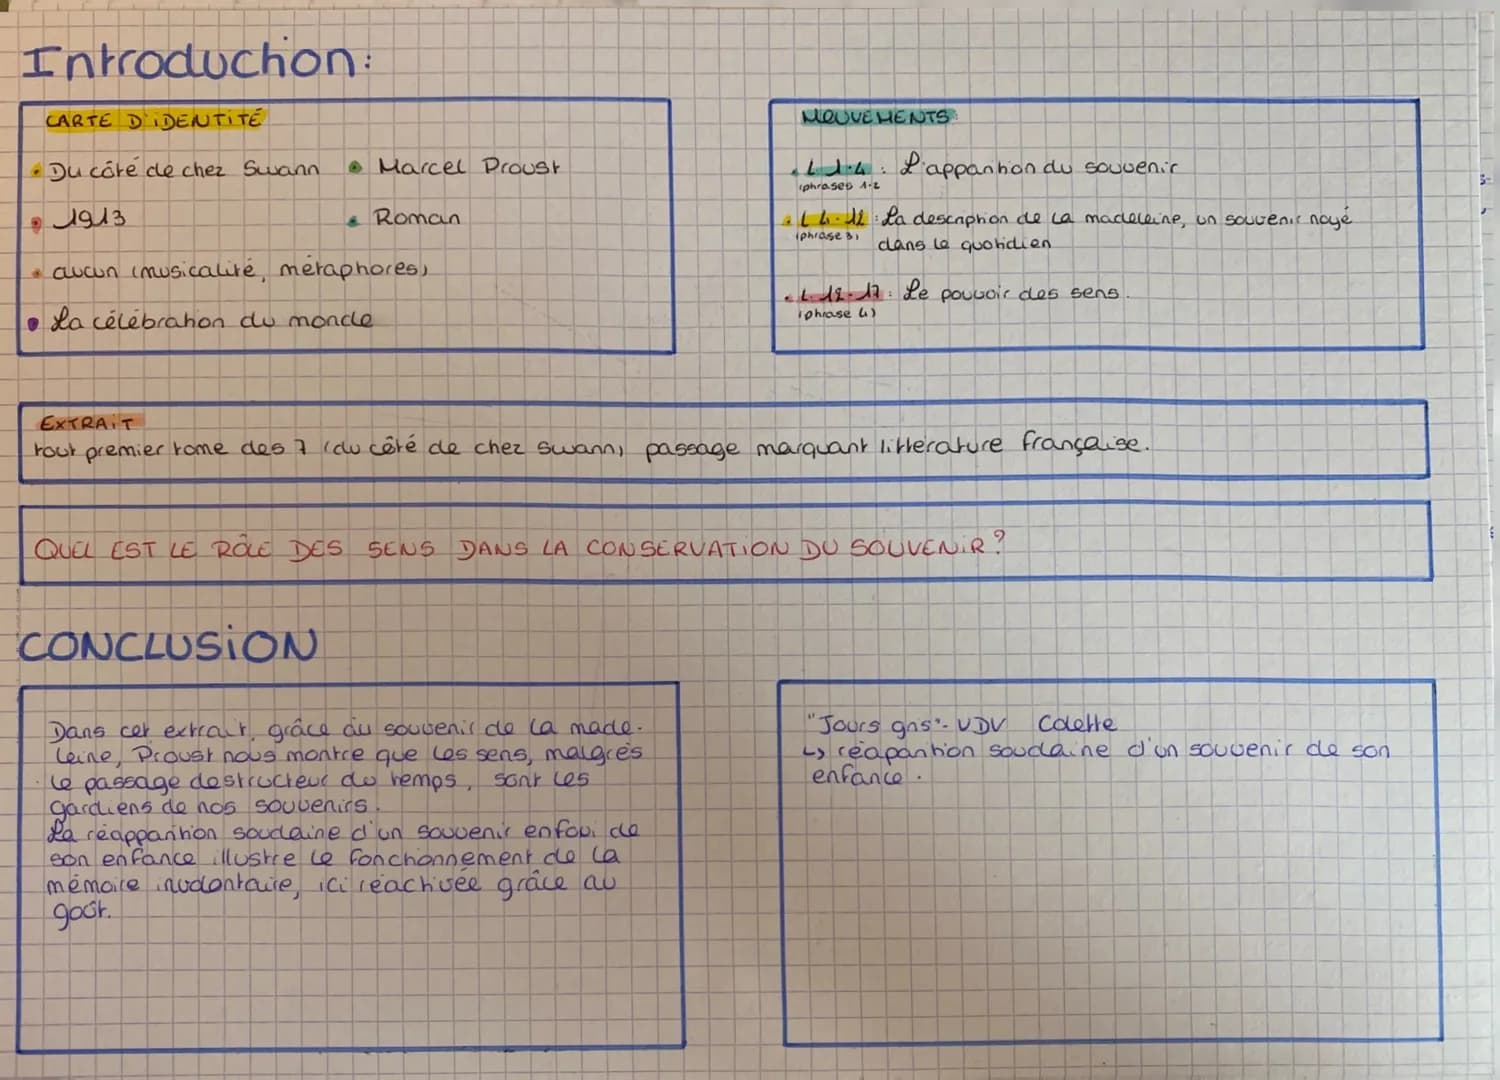 Introduction:
CARTE D'iDENTITÉ
• Du côté de chez Swann • Marcel Proust
• 1913 • Roman
• aucun (musicalité, métaphores)
• La célébration du monde
MOUVEMENTS:
• L 1-4 : L'apparition du souvenir
(phrases 1-2
• L 4-12 : La description de la madeleine, un souvenir noyé
(phrase 3) dans le quotidien
• L 12-17 : Le pouvoir des sens.
(phrase 4)
EXTRAiT
tout premier tome des 7 (du côté de chez swann) passage marquant litterature française.
QUEL EST LE RÔLE DES SENS DANS LA CONSERVATION DU SOUVENiR ?
CONCLUSiON
Dans cet extrait, grâce au souvenir de la made-
leine, Proust nous montre que les sens, malgrès
le passage destructeur du temps, sont les
gardiens de nos souvenirs.
La réapparition soudaine d'un souvenir enfoui de
son enfance illustre le fonctionnement de la
mémoire involontaire, ici réactivée grâce au
goût.
"Jours gris" - VDV Colette
↳ réaparition soudaine d'un souvenir de son
enfance.